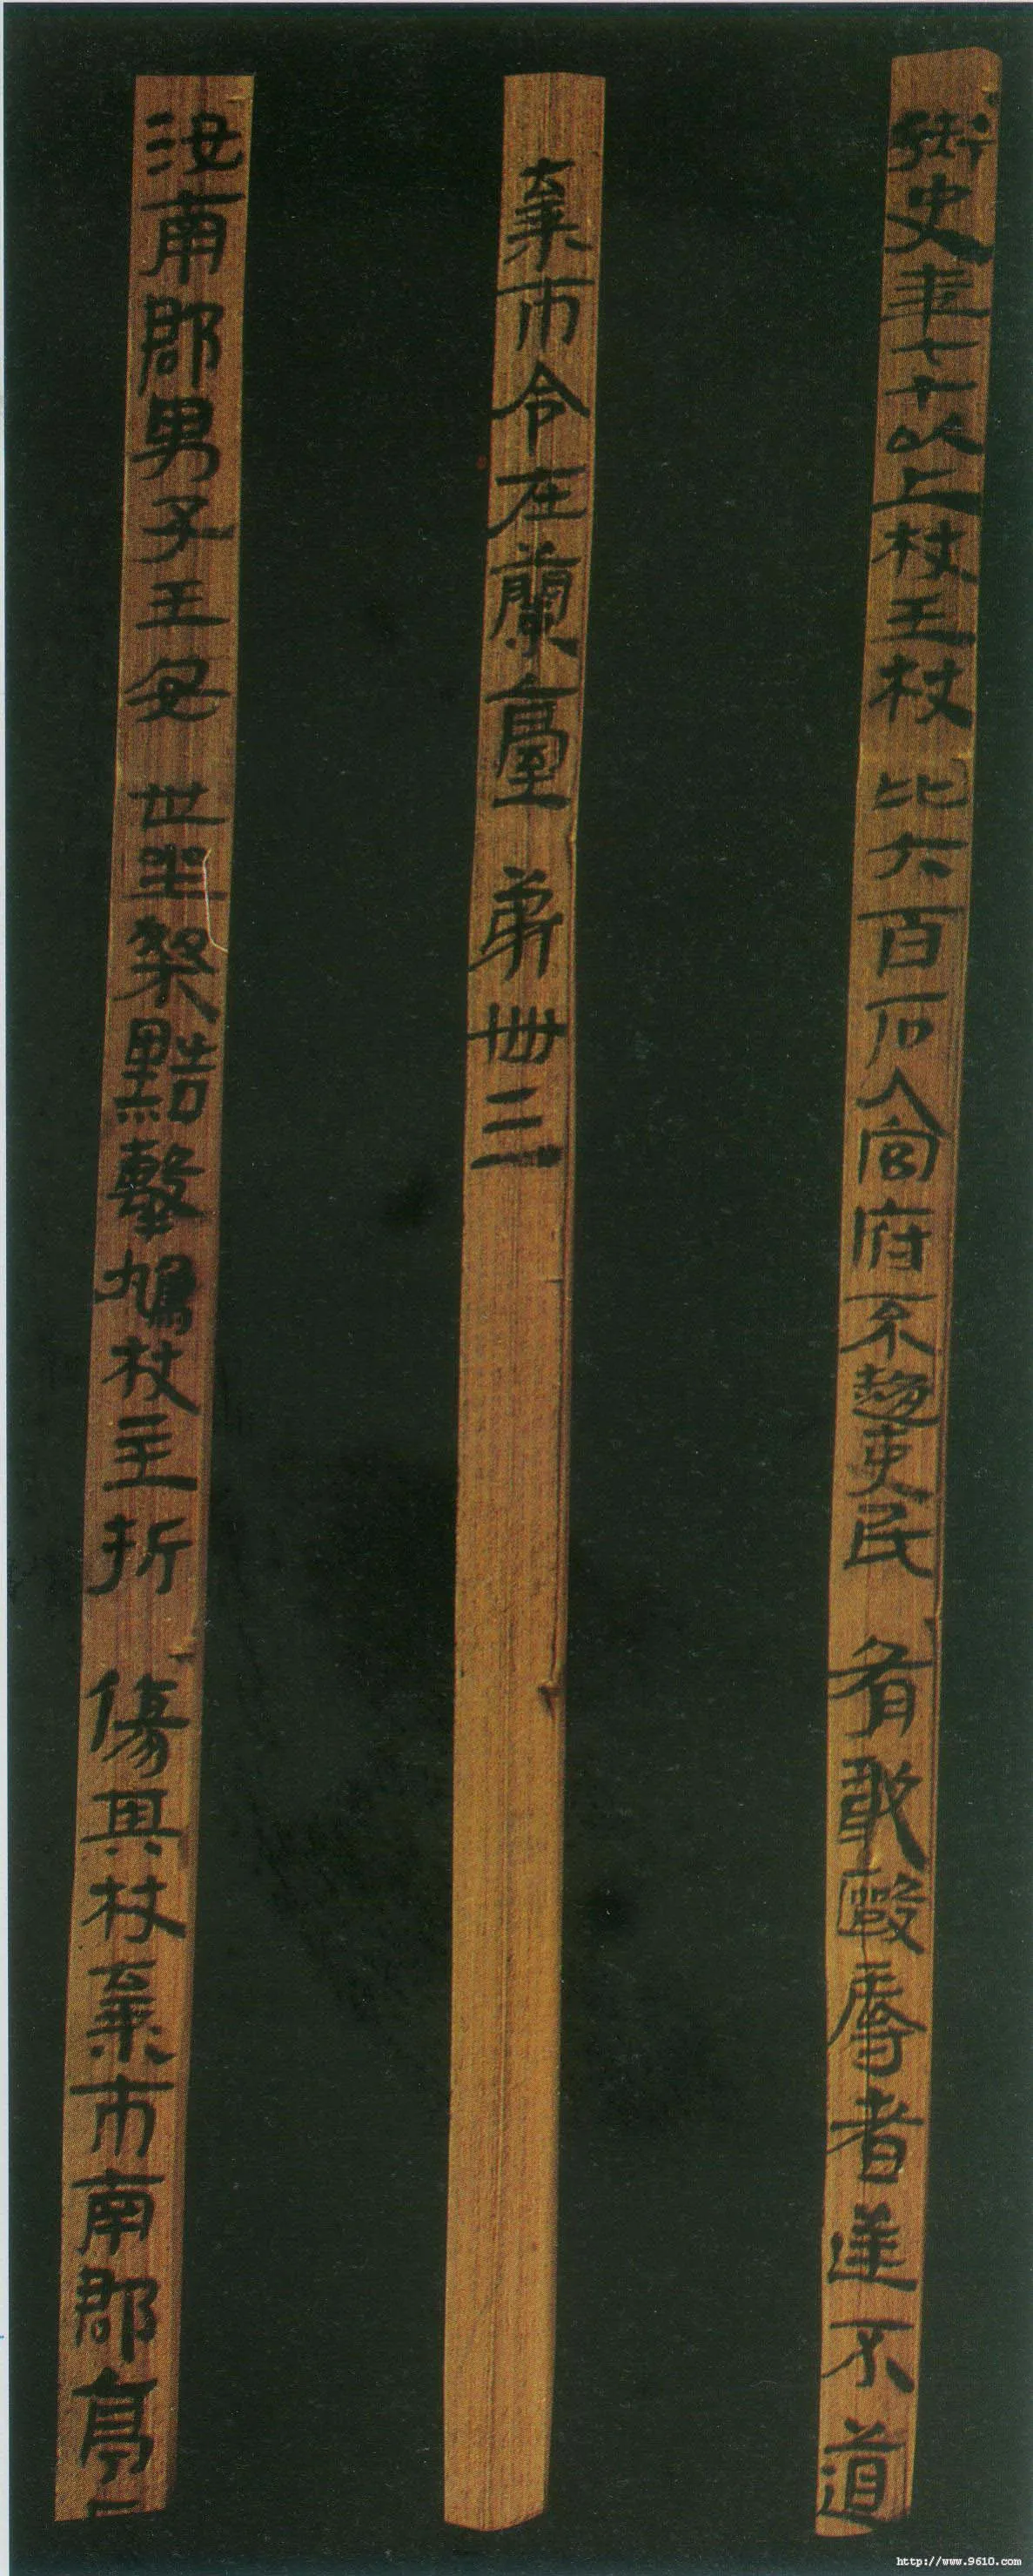 御史年七十以上杖王杖比六百石入官府不趨吏民有敢毆辱者逆不道
棄市令在蘭臺第卅三
汝南郡男子王安世坐桀黠擊鳩杖主折傷其杖棄市南郡亭
http://www.9610.com